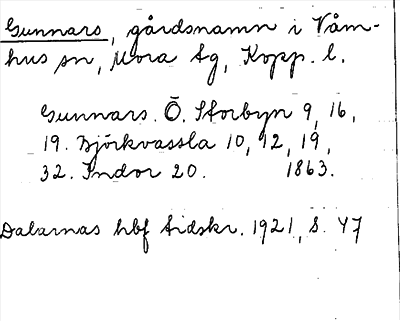 Gunnars, gårdsnamn i Våm-
hus sn, Mora tg, Kopp. l.
Gunnars. Ö. Storbyn 9, 16,
19. Björkvassla 10, 12, 19,
32. Indor 20. 1863.
Dalarnas hbf tidskr. 1921, S. 47